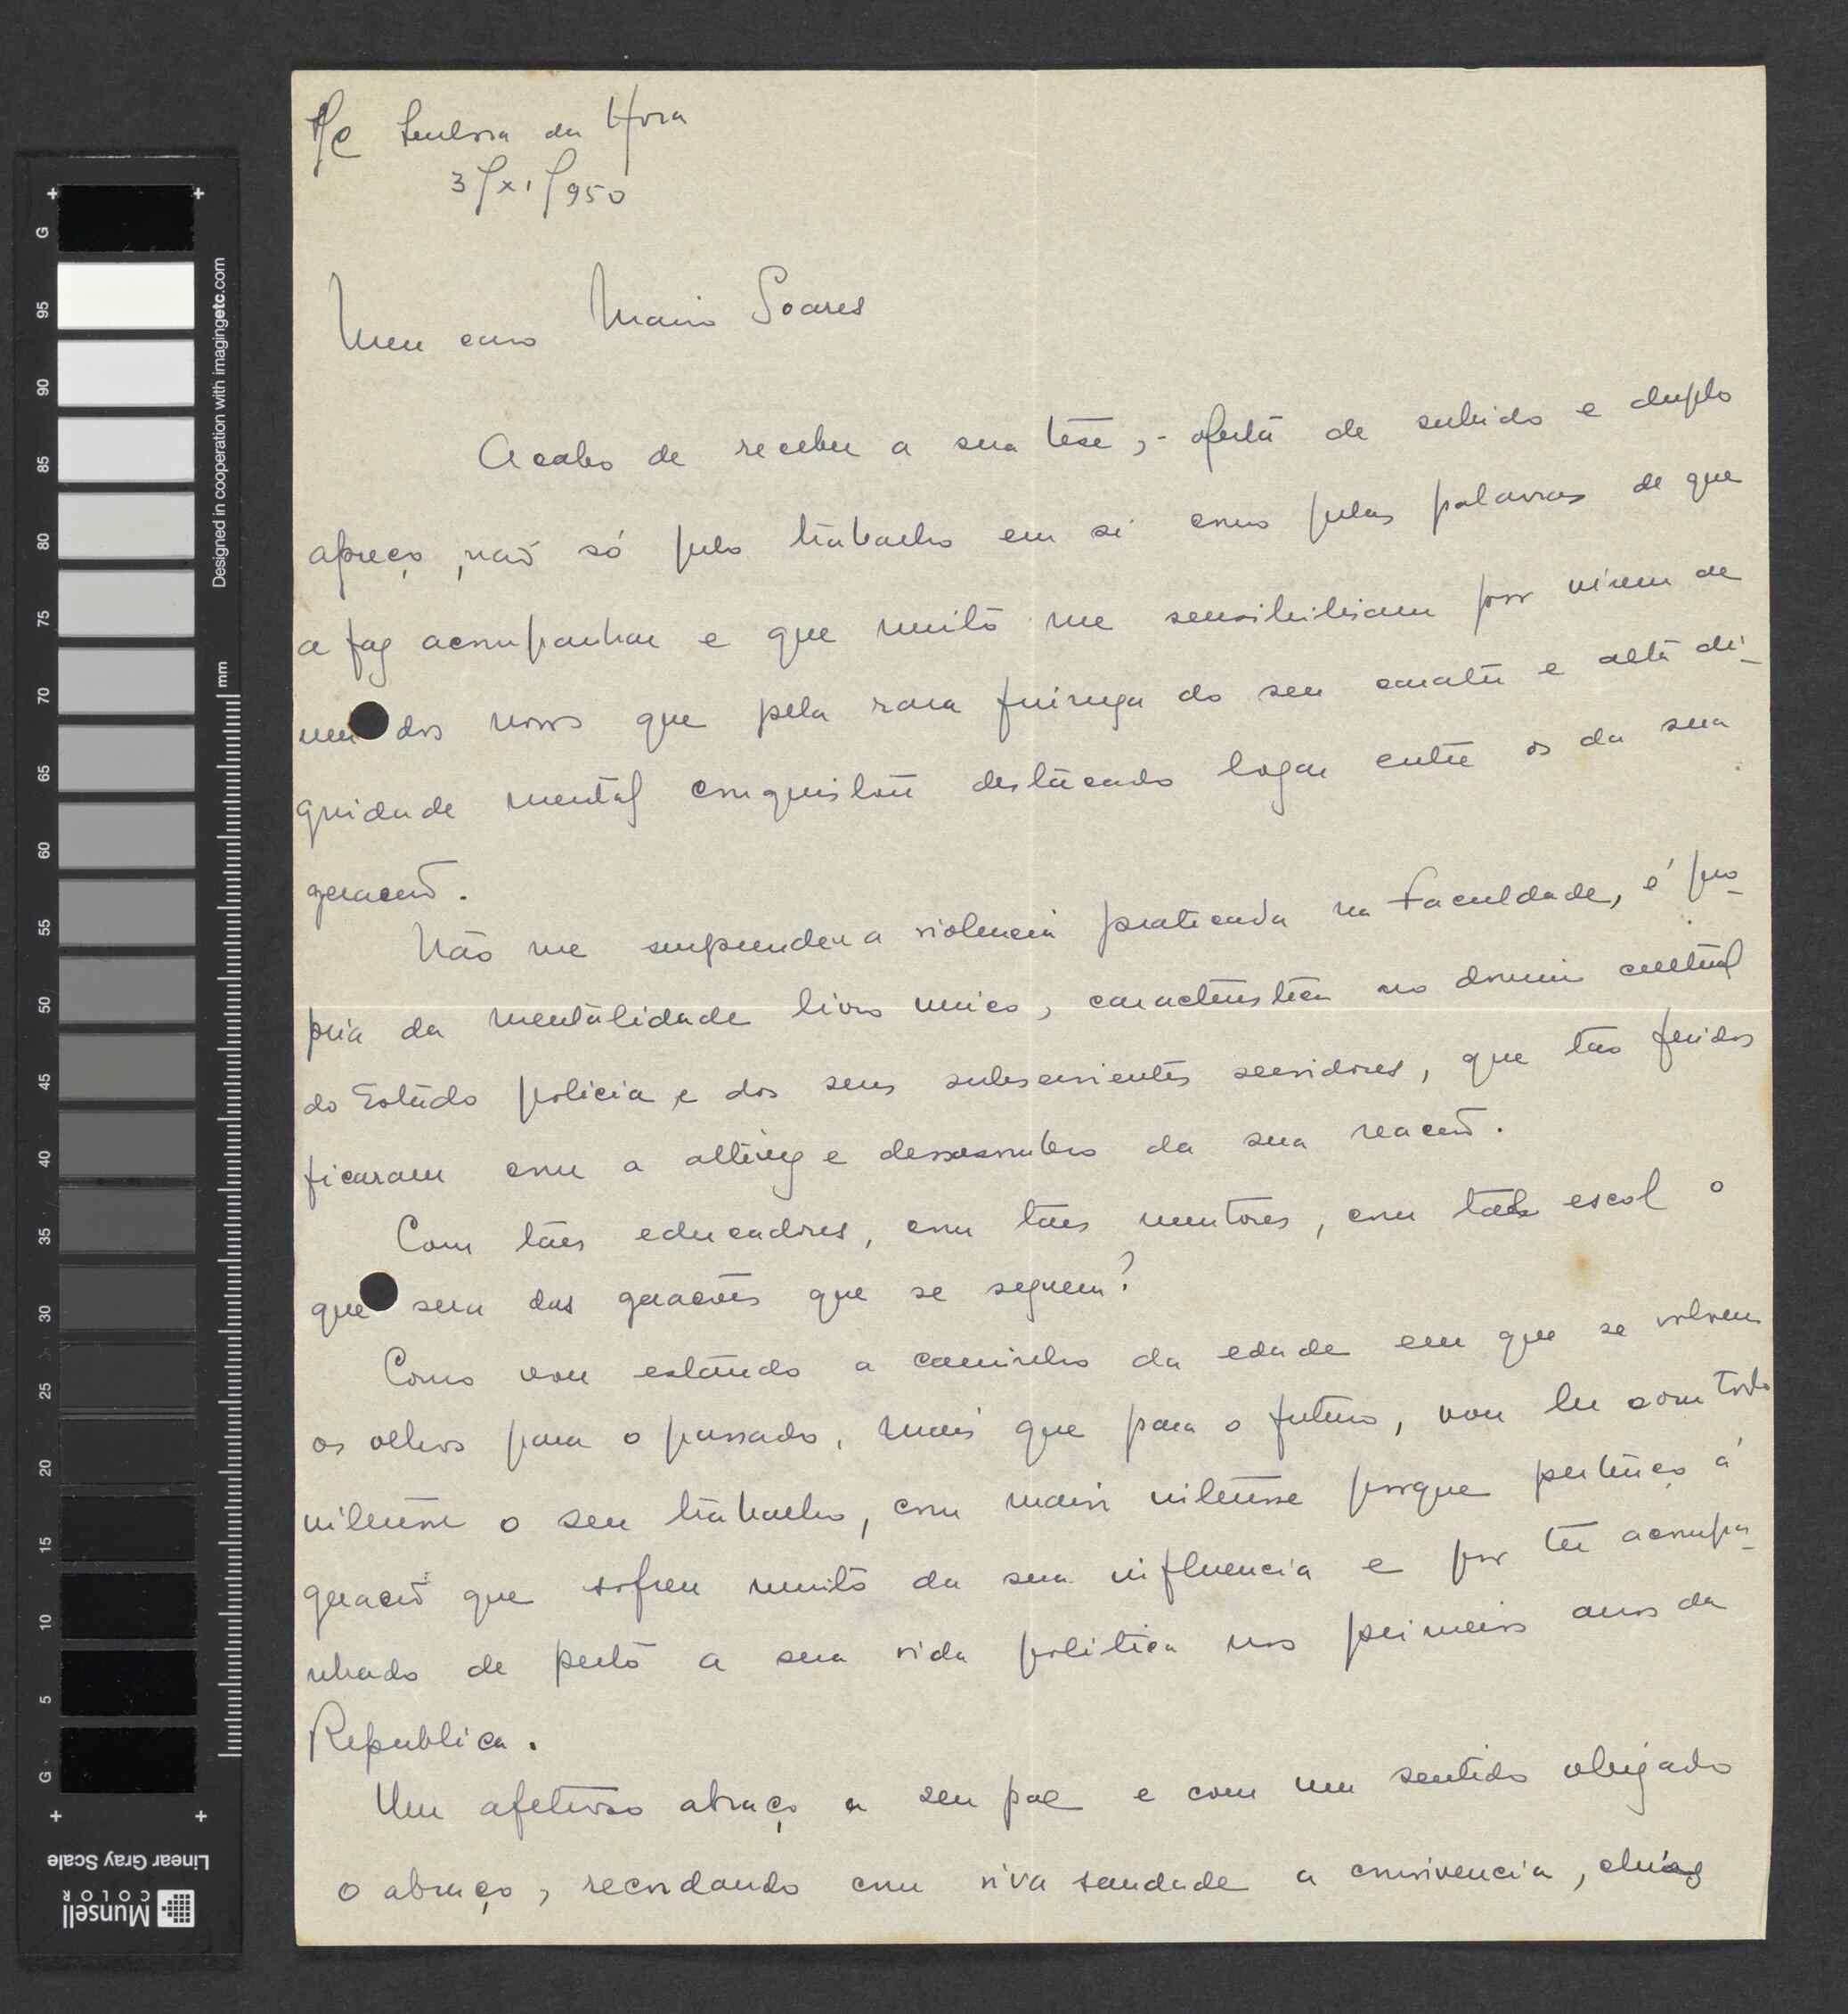 S/C Senhora da Hora
3/XI/950
Meu caro Mario Soares
Acabo de receber a sua tése, - oferta de subido e duplo
apreço, não só pelo trabalho em si como pelas palavras de que
a faz acompanhar e que muito me sensibilisam por virem de
um dos novos que pela rara firmeza do seu carater e alta di-
gnidade mental conquistou destacado logar entre os da sua
geração.
Não me surpreendeu a violencia praticada na Faculdade, é pro-
pria da mentalidade livro unico, caracteristica no dominio cultural
do Estado policia e dos seus subservientes servidores, que tão feridos
ficaram com a altivez e desassombro da sua reacção.
Com táes educadores, com táes mentores, com tal escol o
que sera das gerações que se seguem?
Como vou estando a caminho da edade em que se volvem
os olhos para o passado, mais que para o futuro, vou ler com todo
interesse o seu trabalho, com maior interesse porque pertenço á
geração que sofreu muito da sua influencia e por ter acompa-
nhado de perto a sua vida politica nos primeiros anos da
Republica.
Um afetuoso abraço a seu pae e com um sentido obrigado
o abraço, recordando com viva saudade a convivencia,
Designed in cooperation with imagingetc.com
mm
G
95
90
85
80
75
70
65
60
55
50
45
40
35
30
25
20
15
10
5
G
Linear Gray Scale
Munsell
COLOR